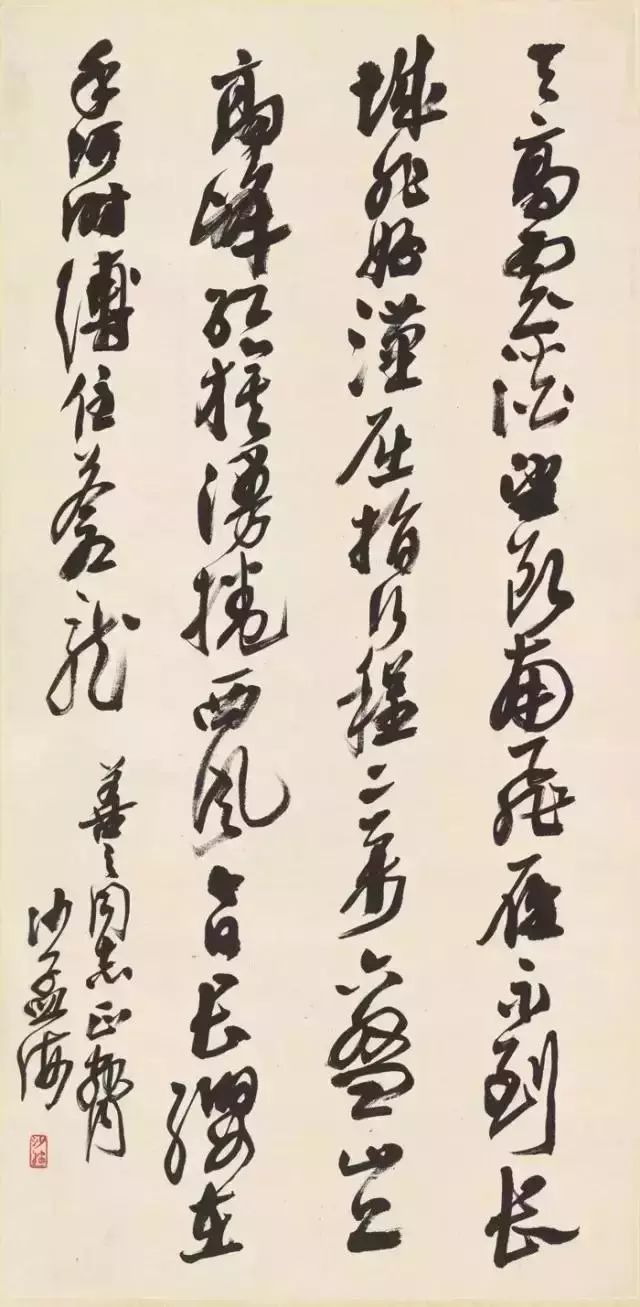 天高雲淡望断南飛雁不到长
城非好漢屈指行程二萬六盤山上
高峰红旗漫捲西风今日长缨在
手何时缚住蒼龍
善之同志正腕
沙孟海